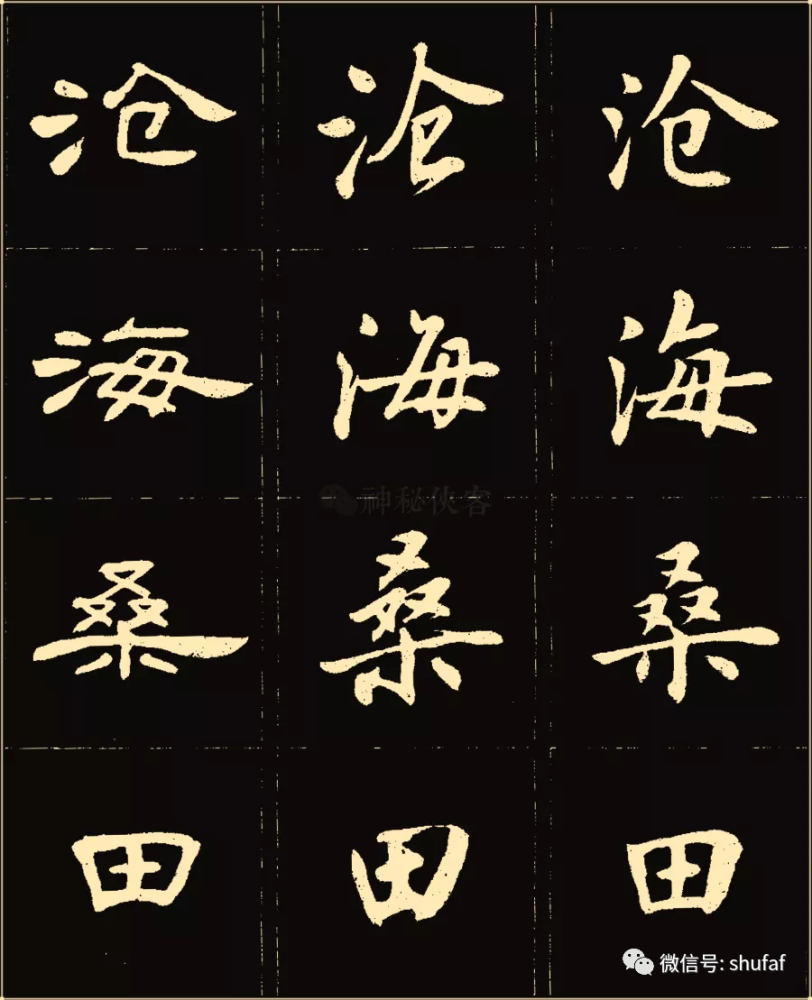 沧 沧 沧
海 海 海
神秘侠客
桑 桑 桑
田 田 田
微信号: shufaf